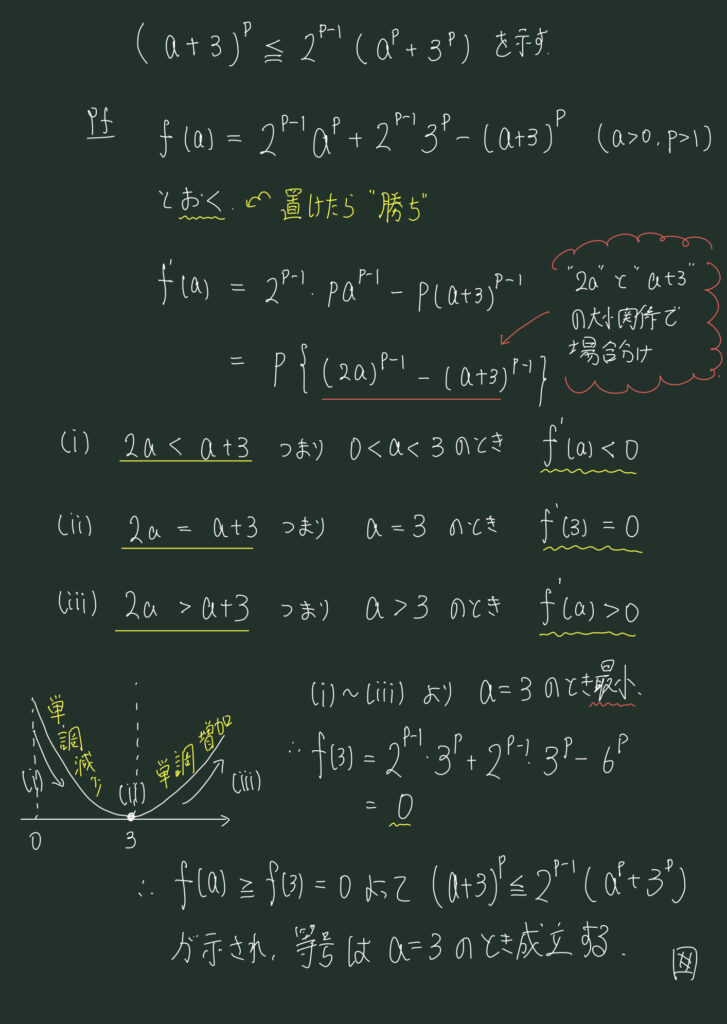 (a+3)^p ≦ 2^{p-1}(a^p+3^p) を示す.
Pf f(a) = 2^{p-1}a^p + 2^{p-1}3^p - (a+3)^p (a>0, p>1)
とおく. ↜ 置けたら"勝ち"
f'(a) = 2^{p-1}・pa^{p-1} - p(a+3)^{p-1}
= p{(2a)^{p-1} - (a+3)^{p-1}}
"2a"と"a+3"
の大小関係で
場合分け
(i) 2a < a+3 つまり 0<a<3 のとき f'(a)<0
(ii) 2a = a+3 つまり a=3 のとき f'(3)=0
(iii) 2a > a+3 つまり a>3 のとき f'(a)>0
(i)~(iii) より a=3 のとき最小.
∴ f(3) = 2^{p-1}・3^p + 2^{p-1}・3^p - 6^p
= 0
単調減少
(i)
(ii)
単調増加
(iii)
0
3
∴ f(a) ≧ f(3) = 0 よって (a+3)^p ≦ 2^{p-1}(a^p+3^p)
が示され, 等号は a=3 のとき成立する.